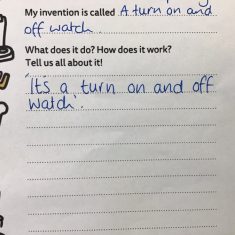 My invention is called A turn on and
off watch.
What does it do? How does it work?
Tell us all about it!
It's a turn on and off
watch.